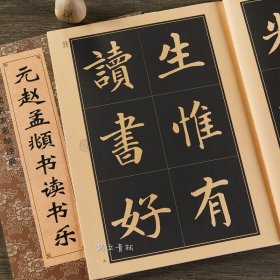 元赵孟頫书读书乐
生惟有
讀書好